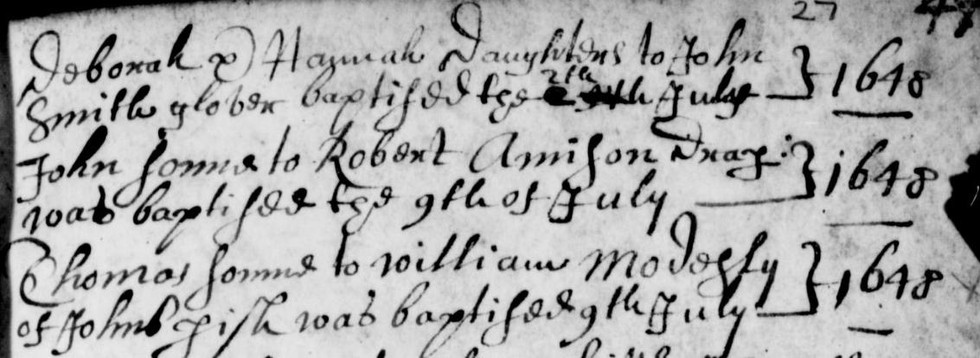 27 47
Deborah & Hannah Daughters to John } 1648
Smith glover baptised the 2th July
John sonne to Robert Amison Drap: } 1648
was baptised the 9th of July
Thomas sonne to William Modesty } 1648
of Johns pish was baptised 9th July